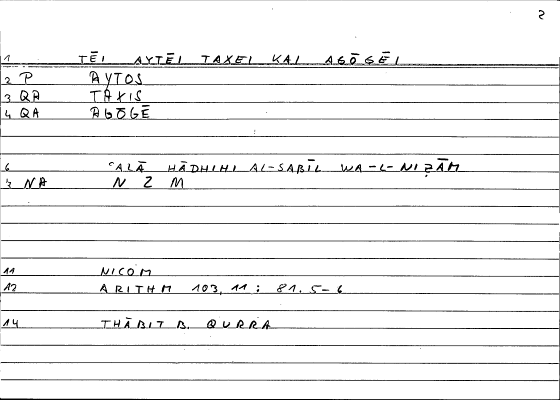 2
1 TĒI AYTĒI TAXEI KAI AGŌGĒI
2 P AYTOS
3 QA TAXIS
4 QA AGŌGĒ
6 ʿALĀ HĀDHIHI AL-SABĪL WA-L-NIẒĀM
7 NA N Z M
11 NICOM
13 ARITHM 103, 11 : 81. 5-6
14 THĀBIT B. QURRA